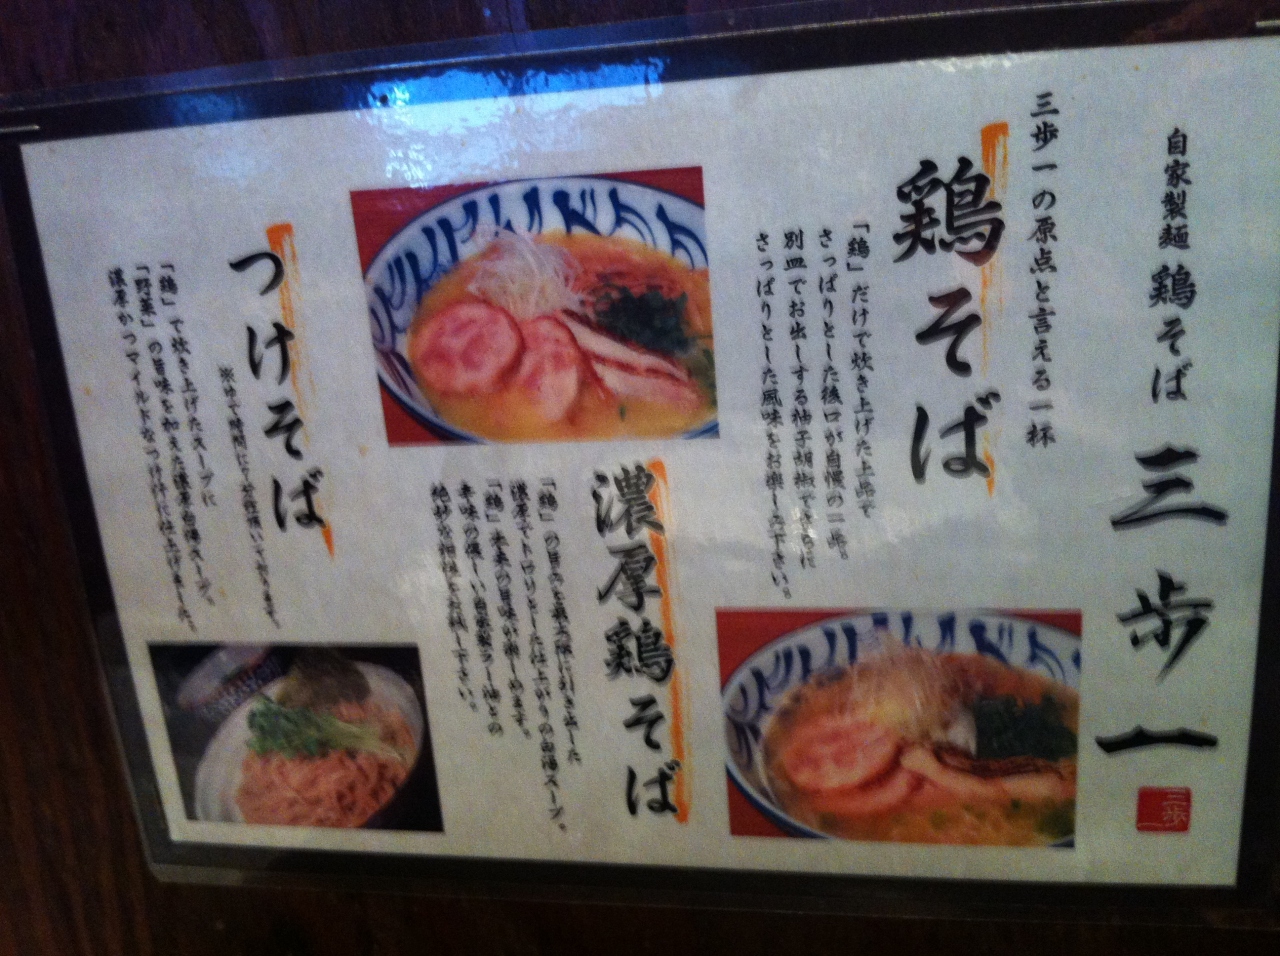 自家製麺 鶏そば 三歩一
三歩一
三歩一の原点と言える一杯
鶏そば
「鶏」だけで炊き上げた上品で
さっぱりとした後口が自慢の一品。
別皿でお出しする柚子胡椒でさらに
さっぱりとした風味をお楽しみ下さい。
濃厚鶏そば
「鶏」の旨みを最大限に引き出した
濃厚でトロリとした仕上がりの白湯スープ。
「鶏」本来の旨味が楽しめます。
辛味の優しい自家製ラー油との
絶妙な相性をお試し下さい。
つけそば
※ゆで時間に
頂いております。
「鶏」で炊き上げたスープに
「野菜」の旨味を加えた濃厚白湯スープ。
濃厚かつマイルドなつけ汁に仕上げました。